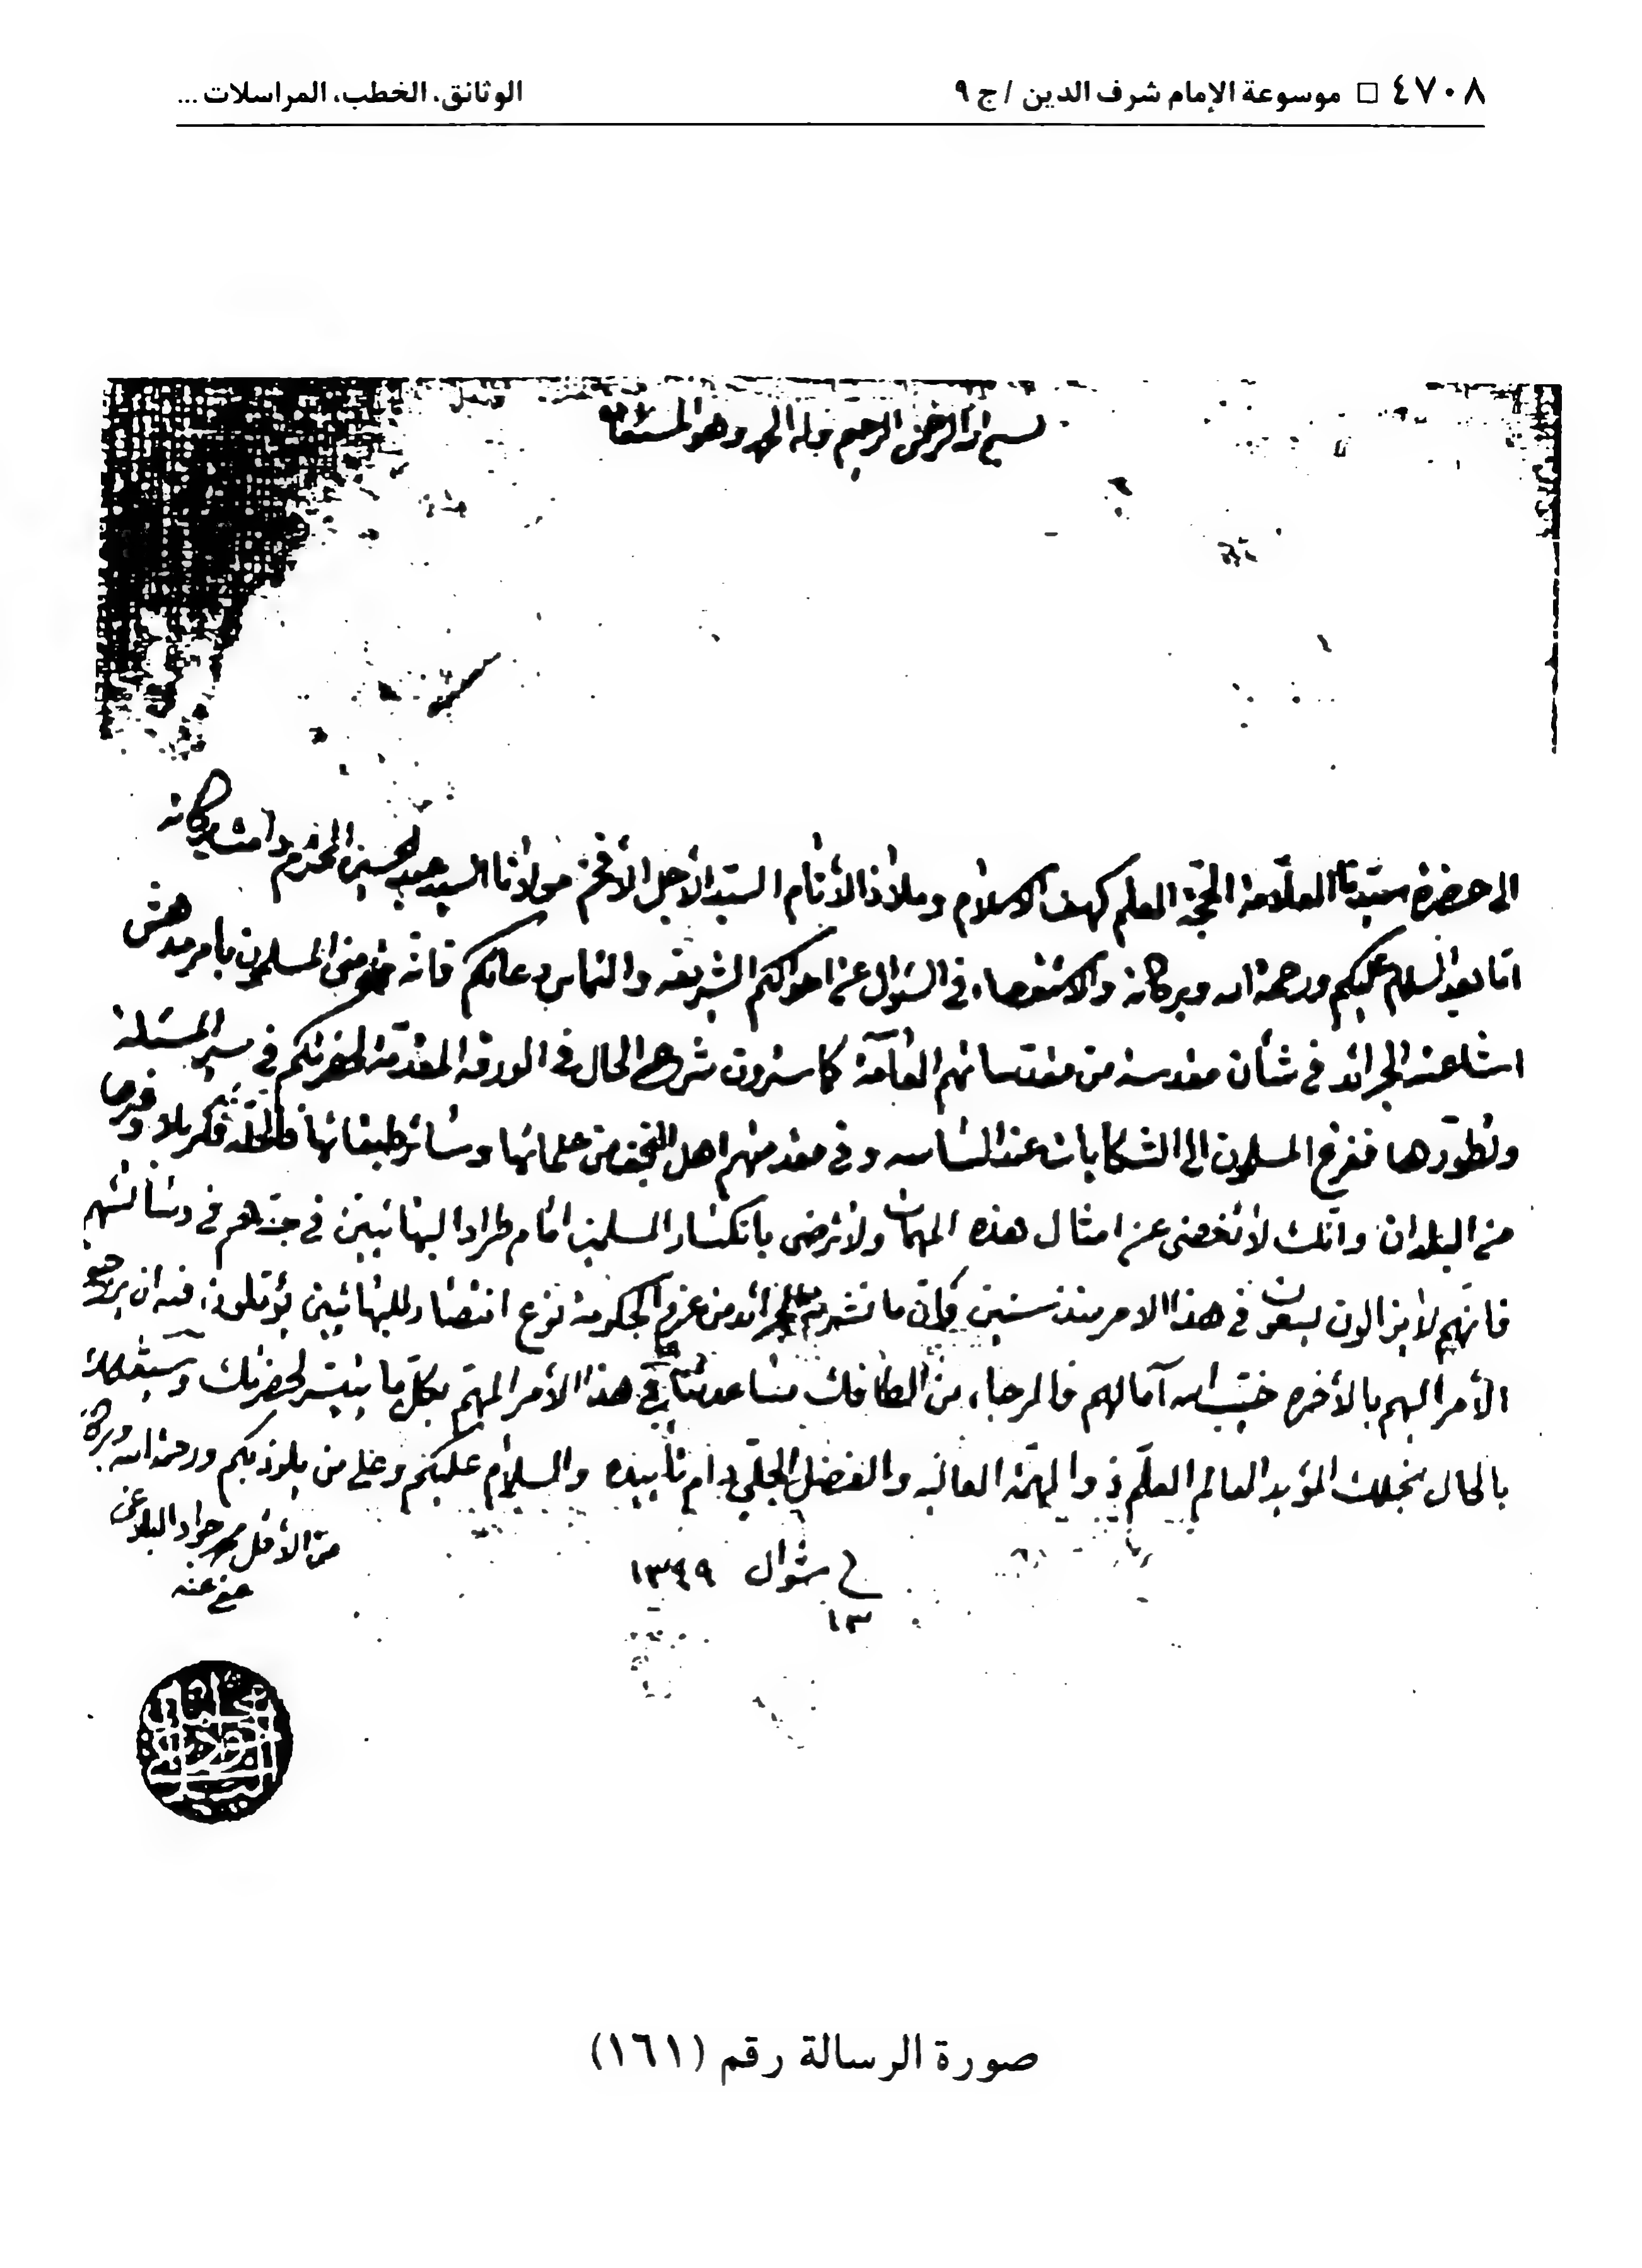 ٤٧٠٨ □ موسوعة الإمام شرف الدين / ج ٩
الوثائق، الخطب، المراسلات ...
بسم الله الرحمن الرحيم وله الحمد وهو المستعان
الى حضرة سيدنا العلّامة الحجة العلم كهف الاسلام وملاذ الأنام السيد الأجل الأفخم مولانا السيد عبد الحسين المحترم دامت بركاته
اما بعد السلام عليكم ورحمة الله وبركاته والاستقصاء في السؤال عن احوالكم الشريفه والتماس دعائكم فانه المسلمون بامر مدهش
اشاعته الجرائد في شأن مقدسة من مقدساتهم العامّة كما سترون شرح الحال في الورقه المقدّمة لحضرتكم في سير المسئلة
وتطوّرها ففزع المسلمون الى الشكايات عند الساسه وفي مقدمتهم اهل النجف من علمائها وسائر طبقاتها فالحلّة فكربلا وغيرها
من البلدان وانّك لا تغضي عن امثال هذه المهمات ولا ترضى بانكسار المسلمين امام طراد البهائيين في جدّهم في دسائسهم
فانهم لا يزالون يسعون في هذا الامر منذ سنين وان ما تنشره الجرائد من عزم الحكومة نوع انتصار للبهائيين يؤملون فيه ان يرجع
الأمر اليهم بالأخره خيّب الله آمالهم فالرجاء من الطافك مساعدتنا في هذا الأمر المهم بكل ما يتيسر لحضرتك
بالحال نجلك المؤيد العالم العلم ذو الهمّة العاليه والفضل الجلي دام تأييده والسلام عليكم وعلى من يلوذ بكم ورحمة الله وبركاته
من الأقل محمد جواد البلاغي
عفي عنه
في شوال ١٣٤٩
١٣
صورة الرسالة رقم (١٦١)